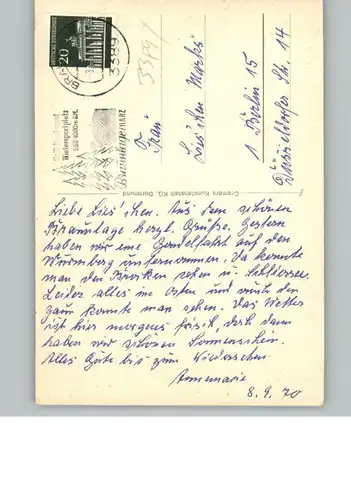 20
3389
33891
Wintersportplatz
Braunlage/HARZ
Frau
Lies'chen Marks
1 Berlin 15
Düsseldorfer Str. 14
Cramers Kunstanstalt KG, Dortmund
Liebe Lies'chen. Aus dem schönen
Braunlage herzl. Grüße. Gestern
haben wir eine Gondelfahrt auf den
Wurmberg unternommen. Da konnte
man den Brocken sehen u.
Leider alles im Osten und auch den
zaun konnte man sehen. Das Wetter
ist hier morgens frisch, doch dann
haben wir schönen Sonnenschein.
Alles Gute bis zum Wiedersehen
Annemarie
8.9.70